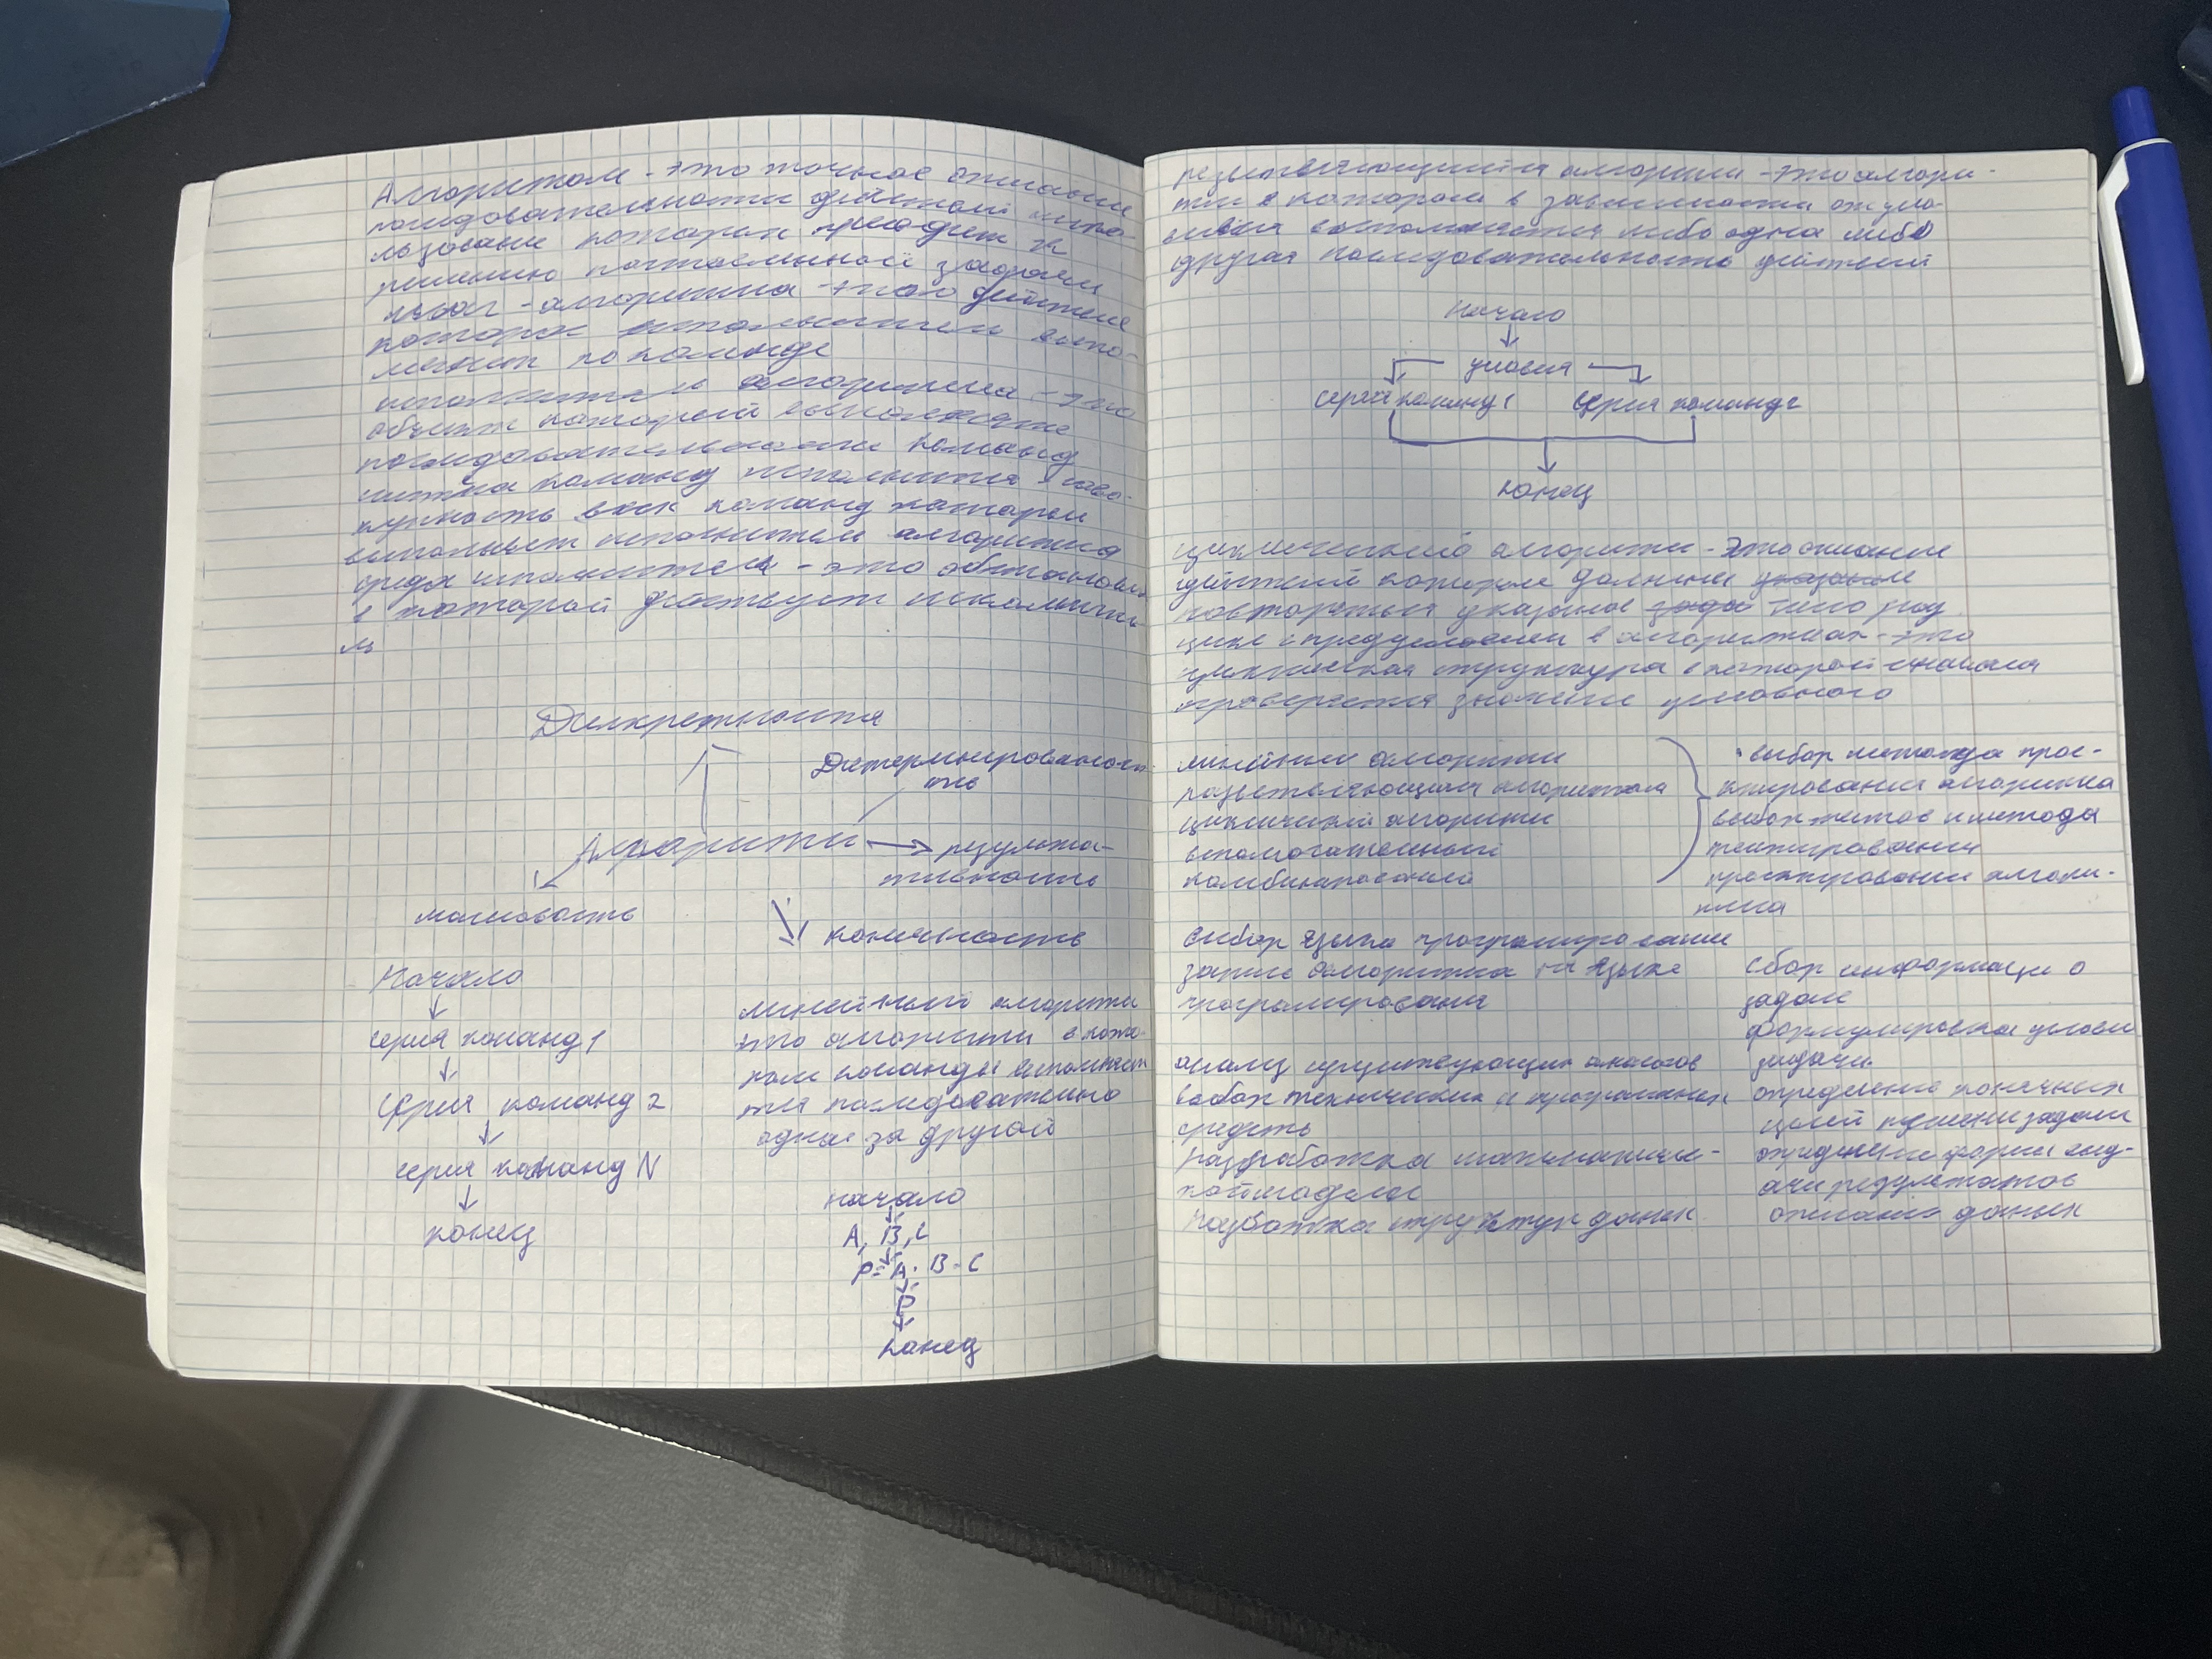 Алгоритом - это точное описание
последовательности действий испо-
льзование которых приводит к
решению поставленной задачи
шаг - алгоритма - это действие
которое исполнитель выпо-
лняет по команде
исполнитель алгоритма - это
объект который выполнение
последовательности команд
система команд исполнителя - сово-
купность всех команд которые
выполняет исполнитель алгоритма
среда исполнителя - это обстановка
в которой действует исполните-
ль
Дискретности
Детерминированнос-
ть
Алгоритм → результа-
тивность
массовость
конечность
Начало
серия команд 1
Серия команд 2
серия команд N
конец
линейный алгоритм
это алгоритм в кото-
ром команды выполняет
тся последовательно
одна за другой
начало
A, B, C
P = A · B · C
P
конец
разветвляющийся алгоритм - это алгори-
тм в котором в зависимости от усло-
вия выполняется либо одна либо
другая последовательность действий
Начало
условия
серия команд 1 Серия команд 2
конец
циклический алгоритм - это описание
действий которые должны указаные
повторяться указаное число раз
цикл с предусловием в алгоритмах - это
циклическая структура в которой сначала
проверяется значение условного
линейные алгоритм
разветвляющийся алгоритмом
циклический алгоритм
вспомогательный
комбинированый
выбор метода прое-
ктирования алгоритма
выбор тестов и метода
тестирования
проектирование алгори-
тма
выбор языка програмирование
запись алгоритма на языке
програмирования
анализ существующих аналогов
выбор технических и програмных
средств
Разработка математичес-
кой модели
Разработка структур даных
Сбор информации о
задаче
формулировка услови
задачи
определение конечных
целей решени задачи
определение формы выд-
ачи результатов
описание даных